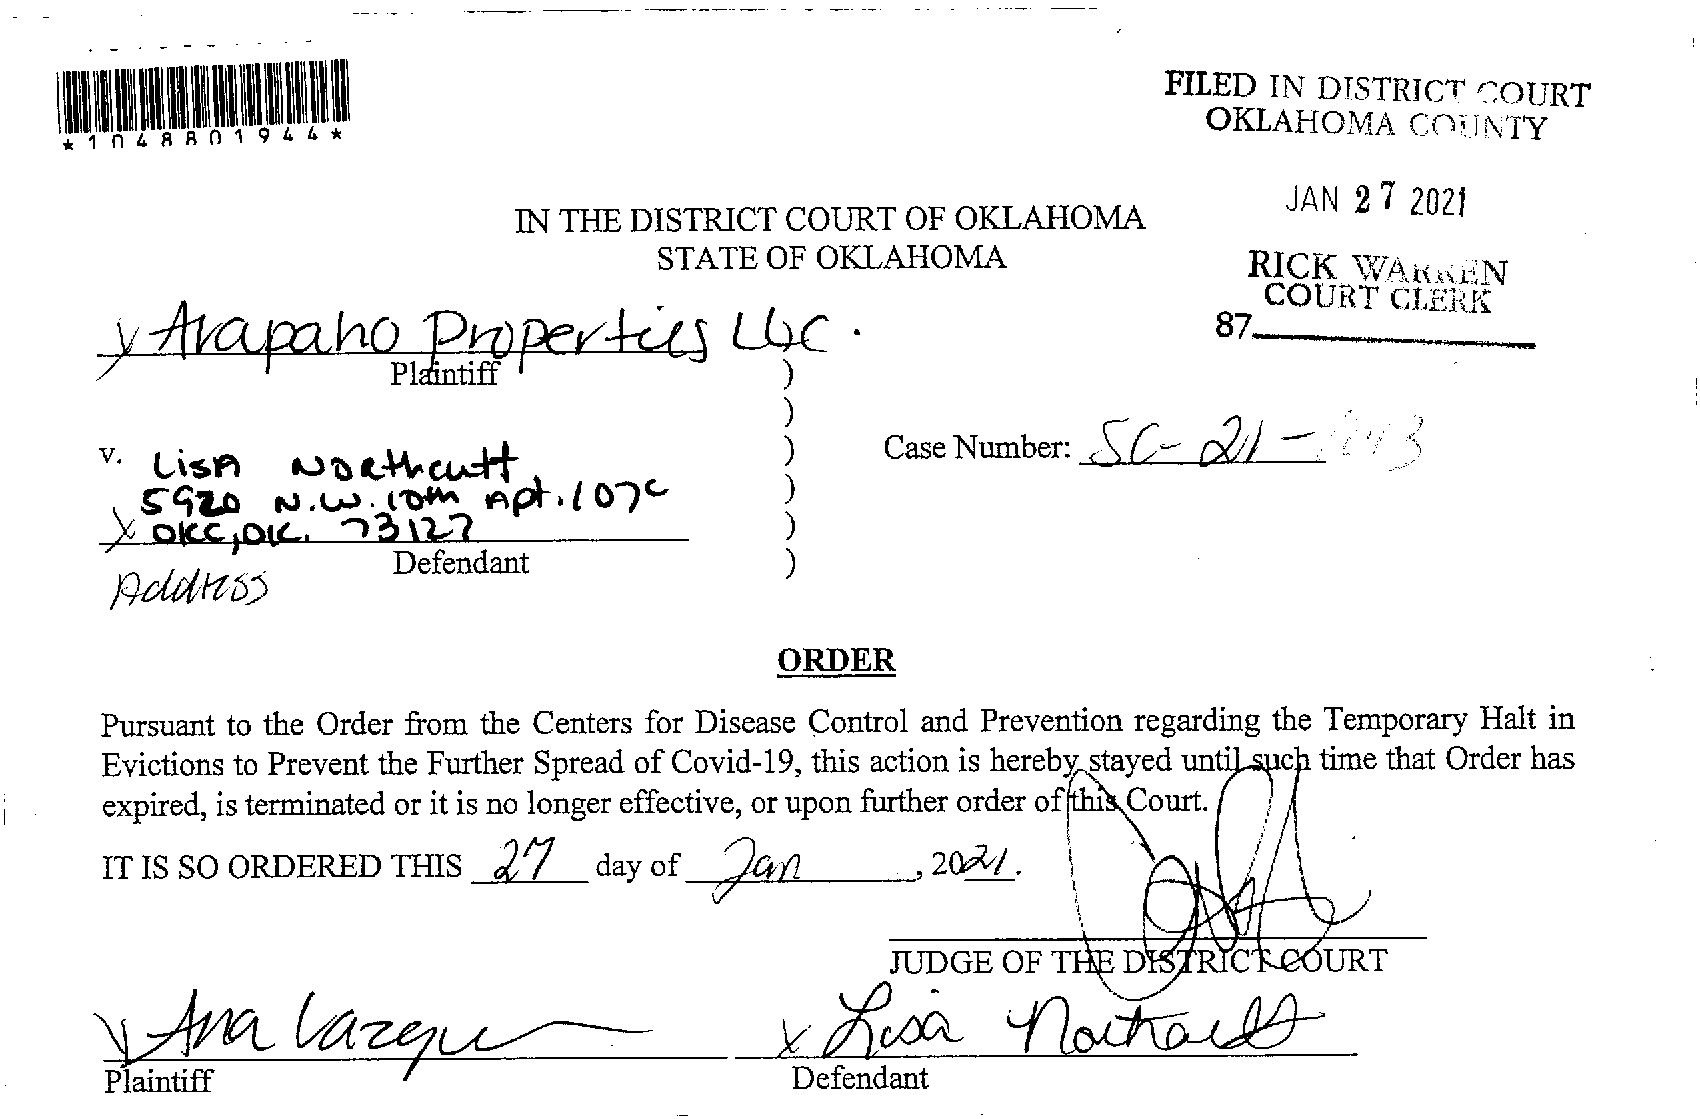 *1048801944*
FILED IN DISTRICT COURT
OKLAHOMA COUNTY
JAN 27 2021
RICK WARREN
COURT CLERK
87
IN THE DISTRICT COURT OF OKLAHOMA
STATE OF OKLAHOMA
x Arapaho Properties LLC.
Plaintiff
)
)
v. Lisa Northcutt )
5920 N.W. 10th Apt. 107C )
x OKC, OK. 73127 )
Defendant )
Address
Case Number: SC-21-
ORDER
Pursuant to the Order from the Centers for Disease Control and Prevention regarding the Temporary Halt in
Evictions to Prevent the Further Spread of Covid-19, this action is hereby stayed until such time that Order has
expired, is terminated or it is no longer effective, or upon further order of this Court.
IT IS SO ORDERED THIS 27 day of Jan, 2021.
JUDGE OF THE DISTRICT COURT
x Ana Vazquez x Lisa Northcutt
Plaintiff Defendant